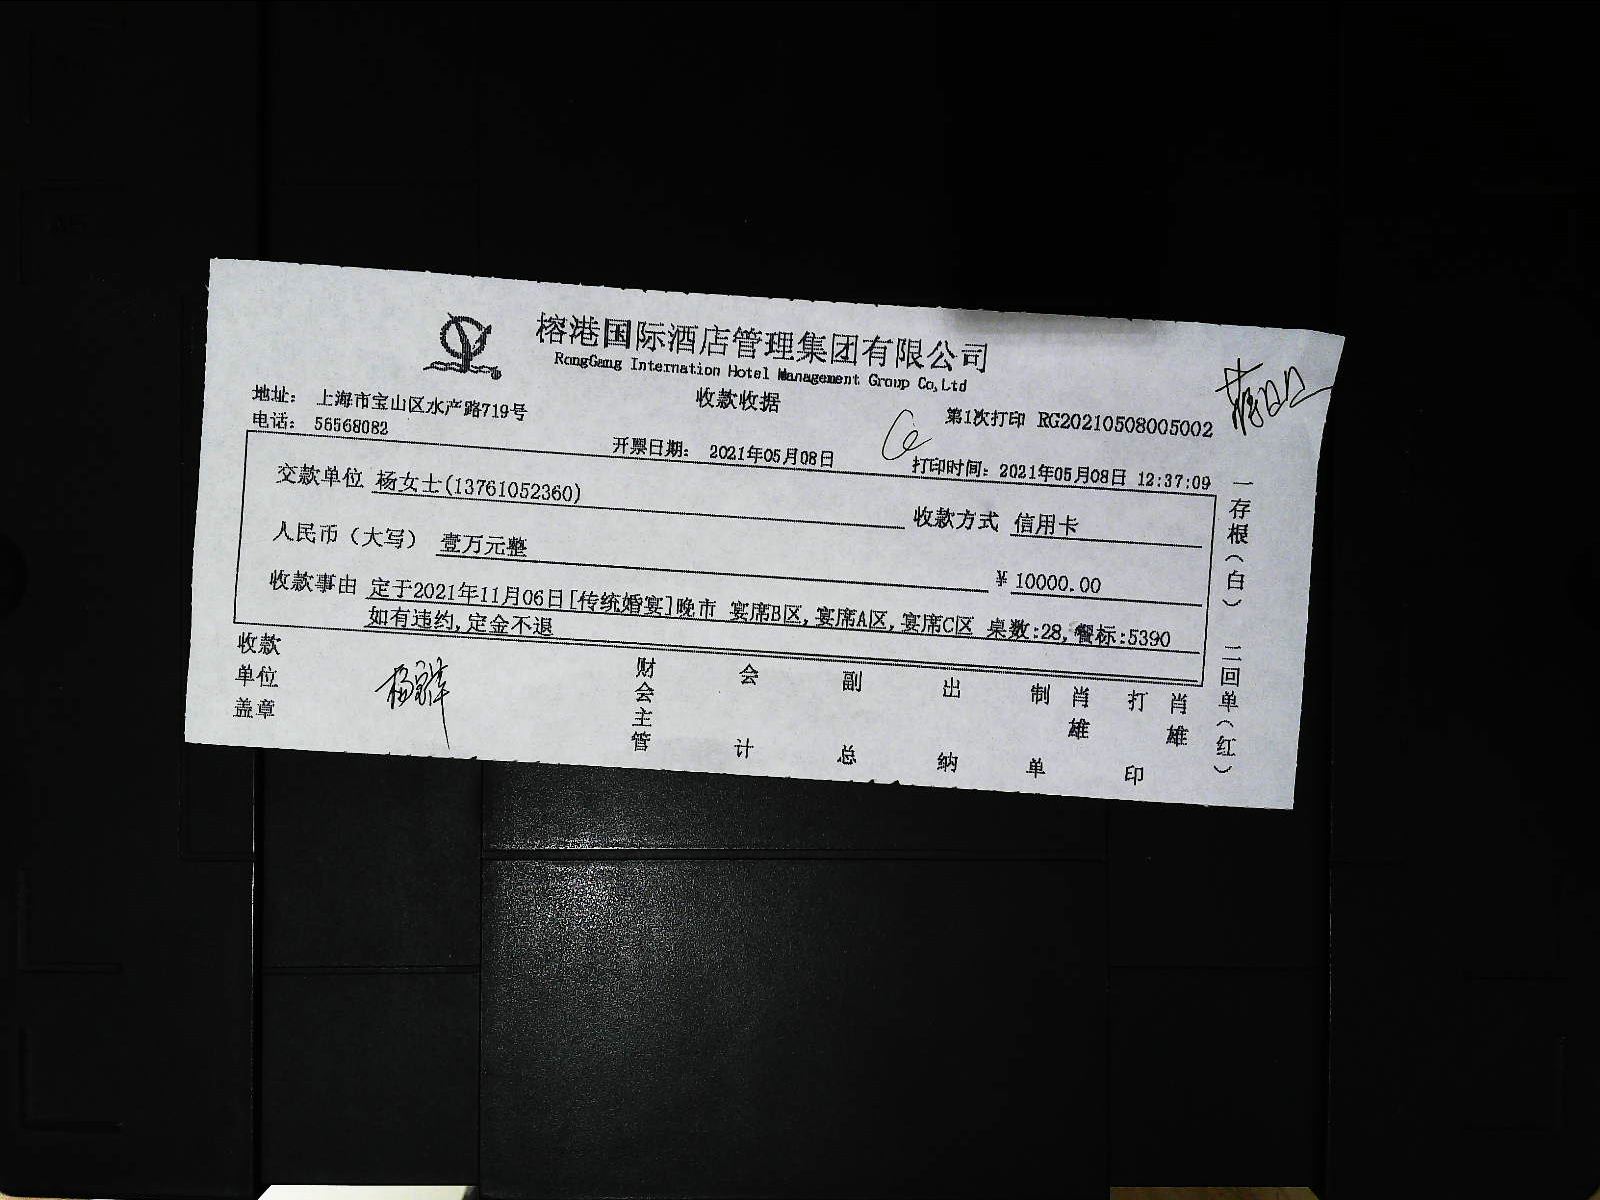 榕港国际酒店管理集团有限公司
RongGang Internation Hotel Management Group Co,Ltd
收款收据
地址： 上海市宝山区水产路719号
第1次打印 RG20210508005002
电话： 56568082
开票日期： 2021年05月08日
打印时间：2021年05月08日 12:37:09
交款单位 杨女士(13761052360)
收款方式 信用卡
人民币（大写） 壹万元整
¥ 10000.00
收款事由 定于2021年11月06日[传统婚宴]晚市 宴席B区,宴席A区,宴席C区 桌数:28,餐标:5390
如有违约,定金不退
收款单位盖章
财会主管
会计
副总
出纳
制单
肖雄
打印
肖雄
一存根（白） 二回单（红）